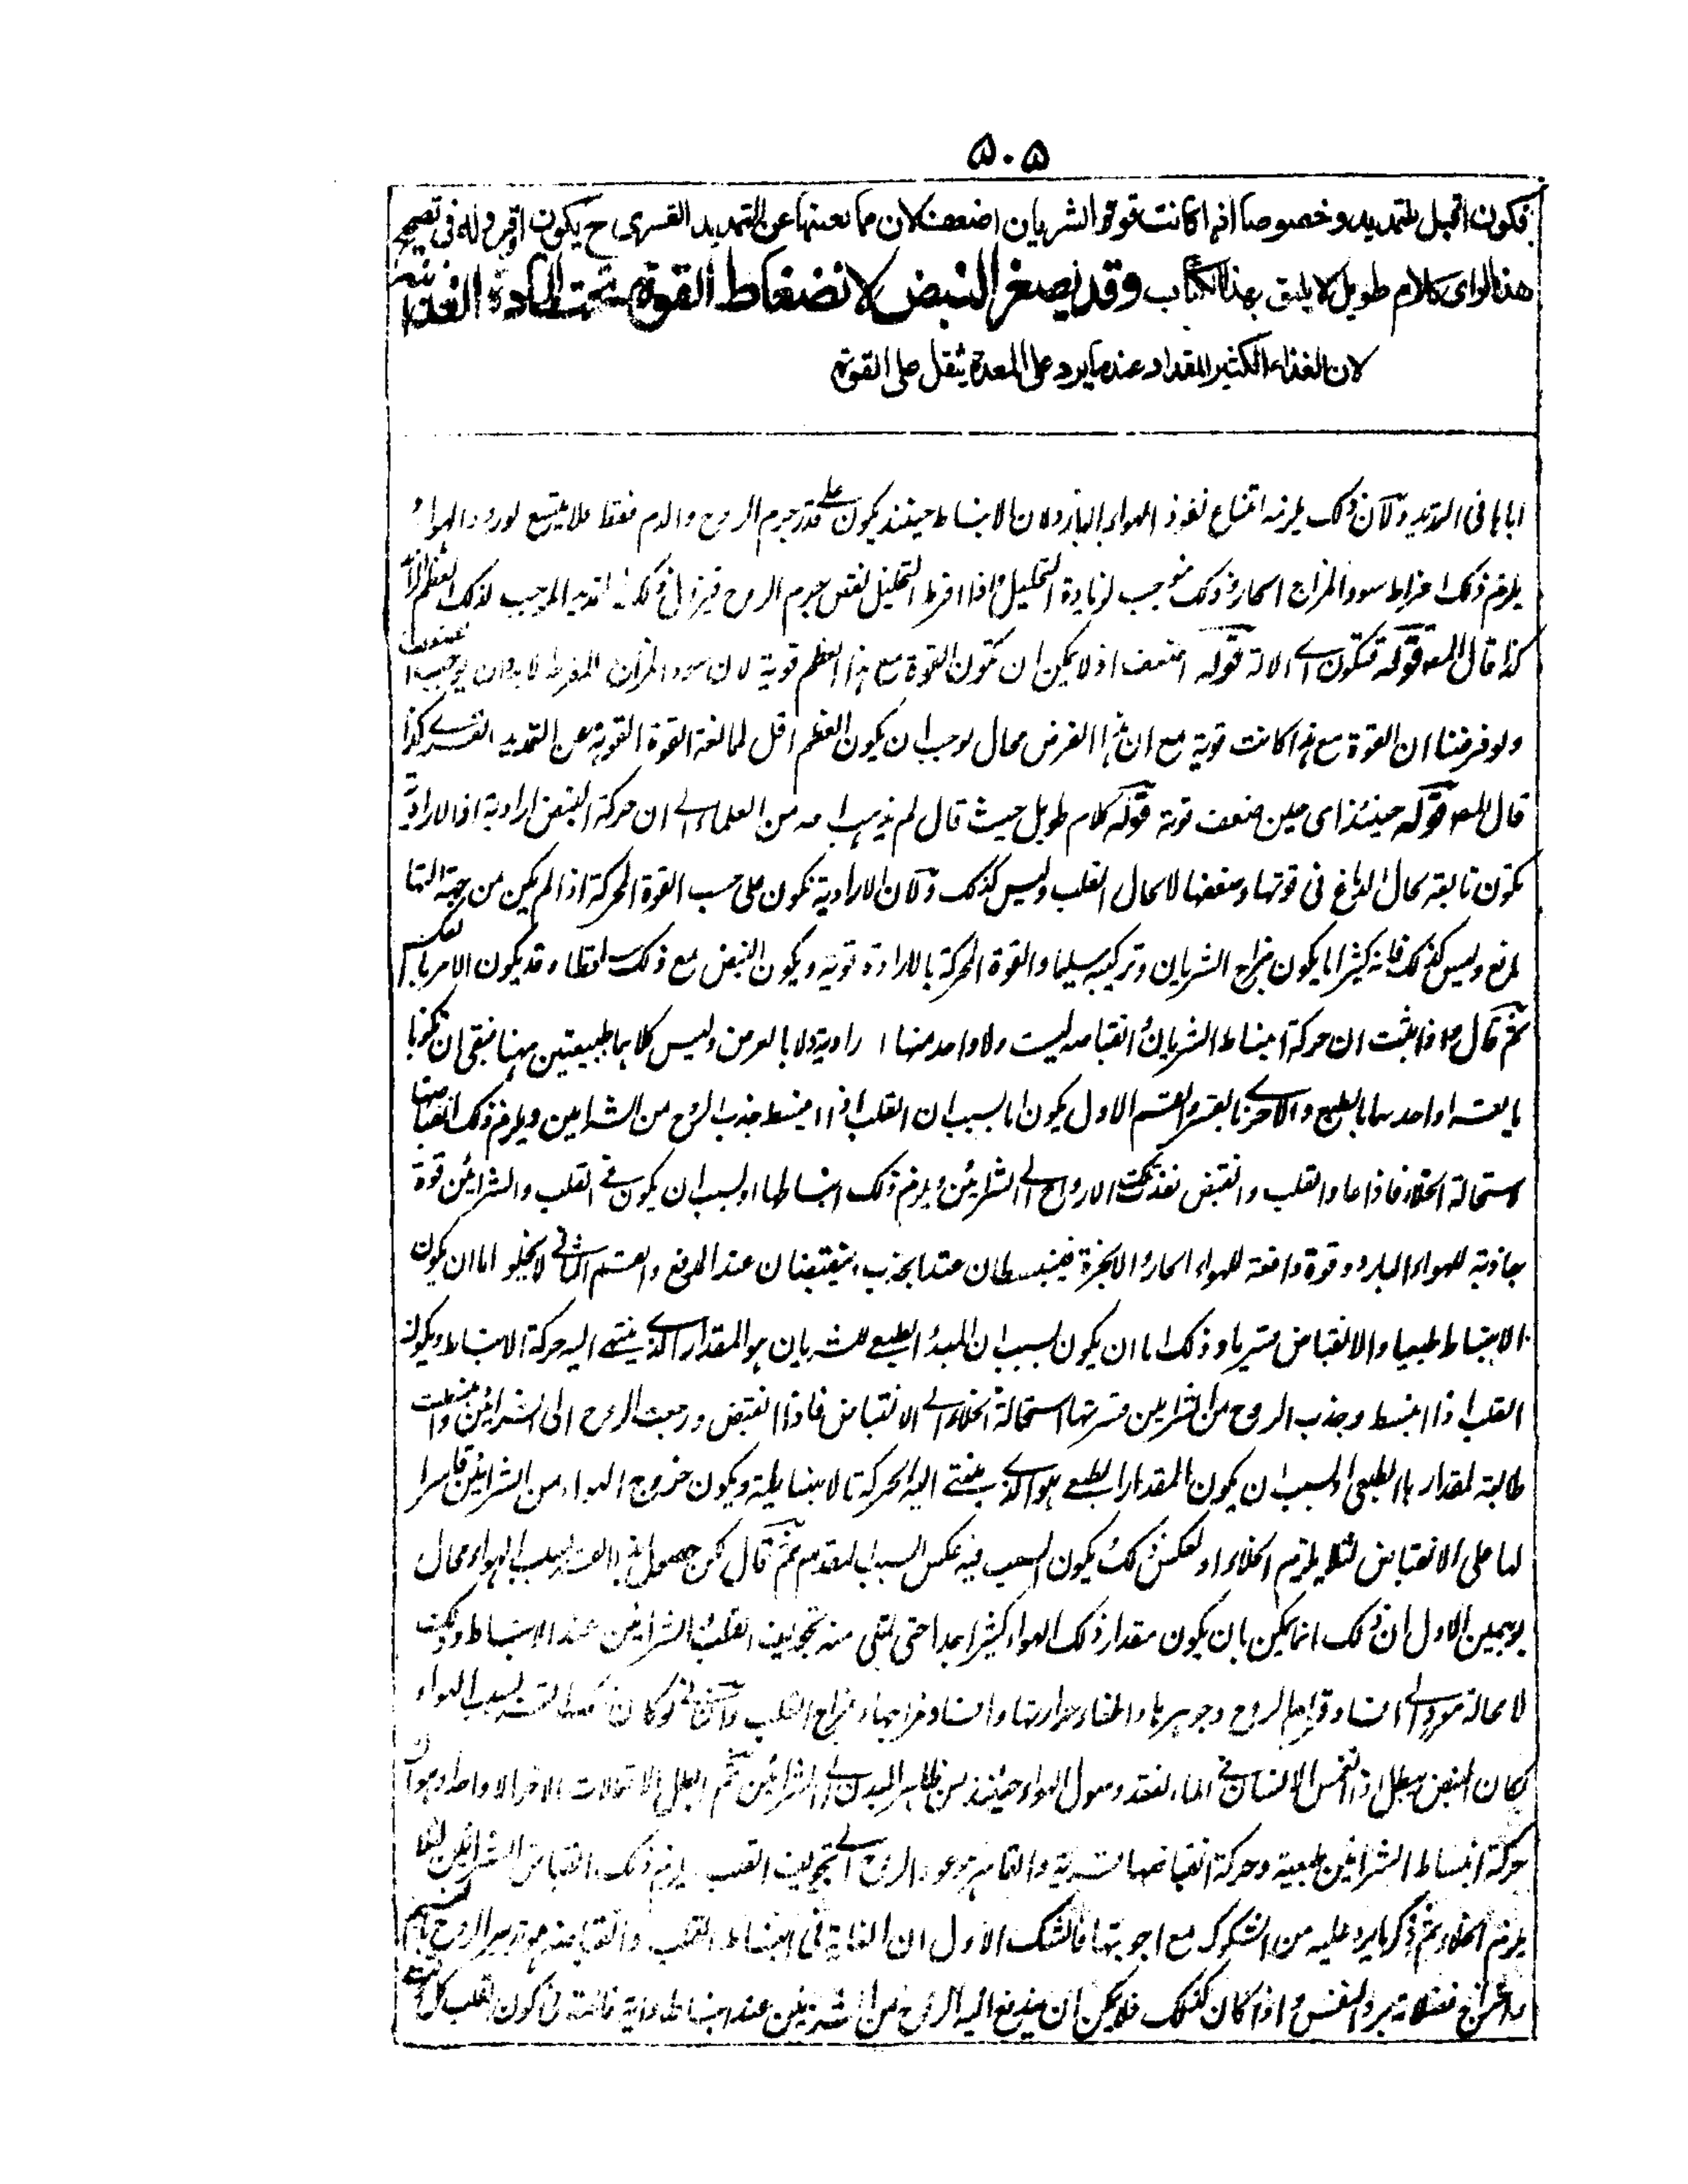 ٥٠٥
فتكون اقبل للتمديد وخصوصا اذا كانت قوة الشريان اضعف لان ممانعتها عن التمديد القسرى ح يكون اقل وله فى تصحيح
هذا الراى كلام طويل لا يليق بهذا الكتاب وقد يصغر النبض لانضغاط القوة تحت المادة الغذائية
لان الغذاء الكثير المقدار عند ما يرد على المعدة يثقل على القوة
فى التمديد ولان ذلك يلزمه امتناع نفوذ الهواء البارد ولان الانبساط حينئذ يكون على قدر جرم الروح والدم فقط فلا يتسع لورود الهواء
يلزم ذلك افراط سوء المزاج الحار وذلك موجب لزيادة التحليل واذا افرط التحليل نقص جرم الروح فيزول ذلك التمديد الموجب لذلك العظم
كذا قال المص قوله فتكون اے الالة قوله اضعف اذ لا يمكن ان تكون القوة مع هذا العظم قوية لان سوء المزاج المفرط لا بد ان يوجب ضعفها
ولو فرضنا ان القوة مع هذا كانت قوية مع ان هذا الفرض محال لوجب ان يكون العظم اقل لممانعة القوة القوية عن التمديد القسرے كذا
قال المص قوله حينئذ اى حين ضعف قوته قوله كلام طويل حيث قال لم يذهب احد من العلماء الے ان حركة النبض ارادية اذ الارادية
تكون تابعة لحال الدماغ فى قوتها وضعفها لا لحال القلب وليس كذلك ولان الارادية تكون على حسب القوة المحركة اذا لم يكن من جهة الالة
مانع وليس كذلك فانه كثيرا ما يكون مزاج الشريان وتركيبه سليما والقوة المحركة بالارادة قوية ويكون النبض مع ذلك ساقطا وقد يكون الامر بالعكس
ثم قال واذا ثبت ان حركة انبساط الشريان وانقباضه ليست ولا واحد منها ارادية ولا بالعرض وليس كلاهما طبيعتين ههنا فبقى ان تكونا
بالقسر او احدهما بالطبع والاخرے بالقسر والقسم الاول يكون اما بسبب ان القلب اذا انبسط جذب الروح من الشرايين ويلزم ذلك انقباضها
لاستحالة الخلاء فاذا عاد القلب وانقبض نفذت تلك الارواح الے الشرايين ويلزم ذلك انبساطها او بسبب ان يكون فے القلب والشرايين قوة
جاذبة للهواء البارد وقوة دافعة للهواء الحار والابخرة فينبسطان عند الجذب وينقبضان عند الدفع والقسم الثانے لا يخلو اما ان يكون
الانبساط طبيعيا والانقباض قسريا وذلك اما ان يكون بسبب ان المبدأ الطبيعے للشريان هو المقدار الذے ينتهے اليه حركة الانبساط ويكون
القلب اذا انبسط وجذب الروح من الشرايين قسرتها استحالة الخلاء الے الانقباض فاذا انقبض ورجعت الروح الى الشرايين وانبسطت
طالبة لمقدارها الطبيعى او بسبب ان يكون المقدار الطبيعے هو الذے ينتهے اليه الحركة الانبساطية ويكون خروج الهواء من الشرايين قاسرا
لها على الانقباض لئلا يلزم الخلاء او بعكس ذلك يكون السبب فيه عكس السبب المتقدم ثم قال لكن حصول هذا القسر بسبب الهواء محال
بوجهين الاول ان ذلك انما يمكن بان يكون مقدار ذلك الهواء كثيرا جدا حتى يمتلى منه تجويف القلب والشرايين عند الانبساط وذلك
لا محالة مؤد الے افساد قوام الروح وجوهرها واطفاء حرارتها وافساد مزاجها ومزاج القلب والثانے لو كان هذا القسر بسبب الهواء
لكان النبض يبطل اذا انغمس الانسان فے الماء لفقد وصول الهواء حينئذ من ظاهر البدن الے الشرايين ثم ابطل الاحتمالات الاخر الا واحدا وهو ان
حركة انبساط الشرايين طبيعية وحركة انقباضها قسرية والقاسر هو عود الروح الے تجويف القلب يلزمه ذلك انقباض الشرايين لئلا
يلزم الخلاء ثم ذكر ما يرد عليه من الشكوك مع اجوبتها فالشك الاول ان الغاية فى انبساط القلب وانقباضه هو تدبير الروح بالنسيم
واخراج فضلاته برد النفس واذا كان كذلك فلا يمكن ان يندفع اليه الروح من الشرايين عند انبساطه